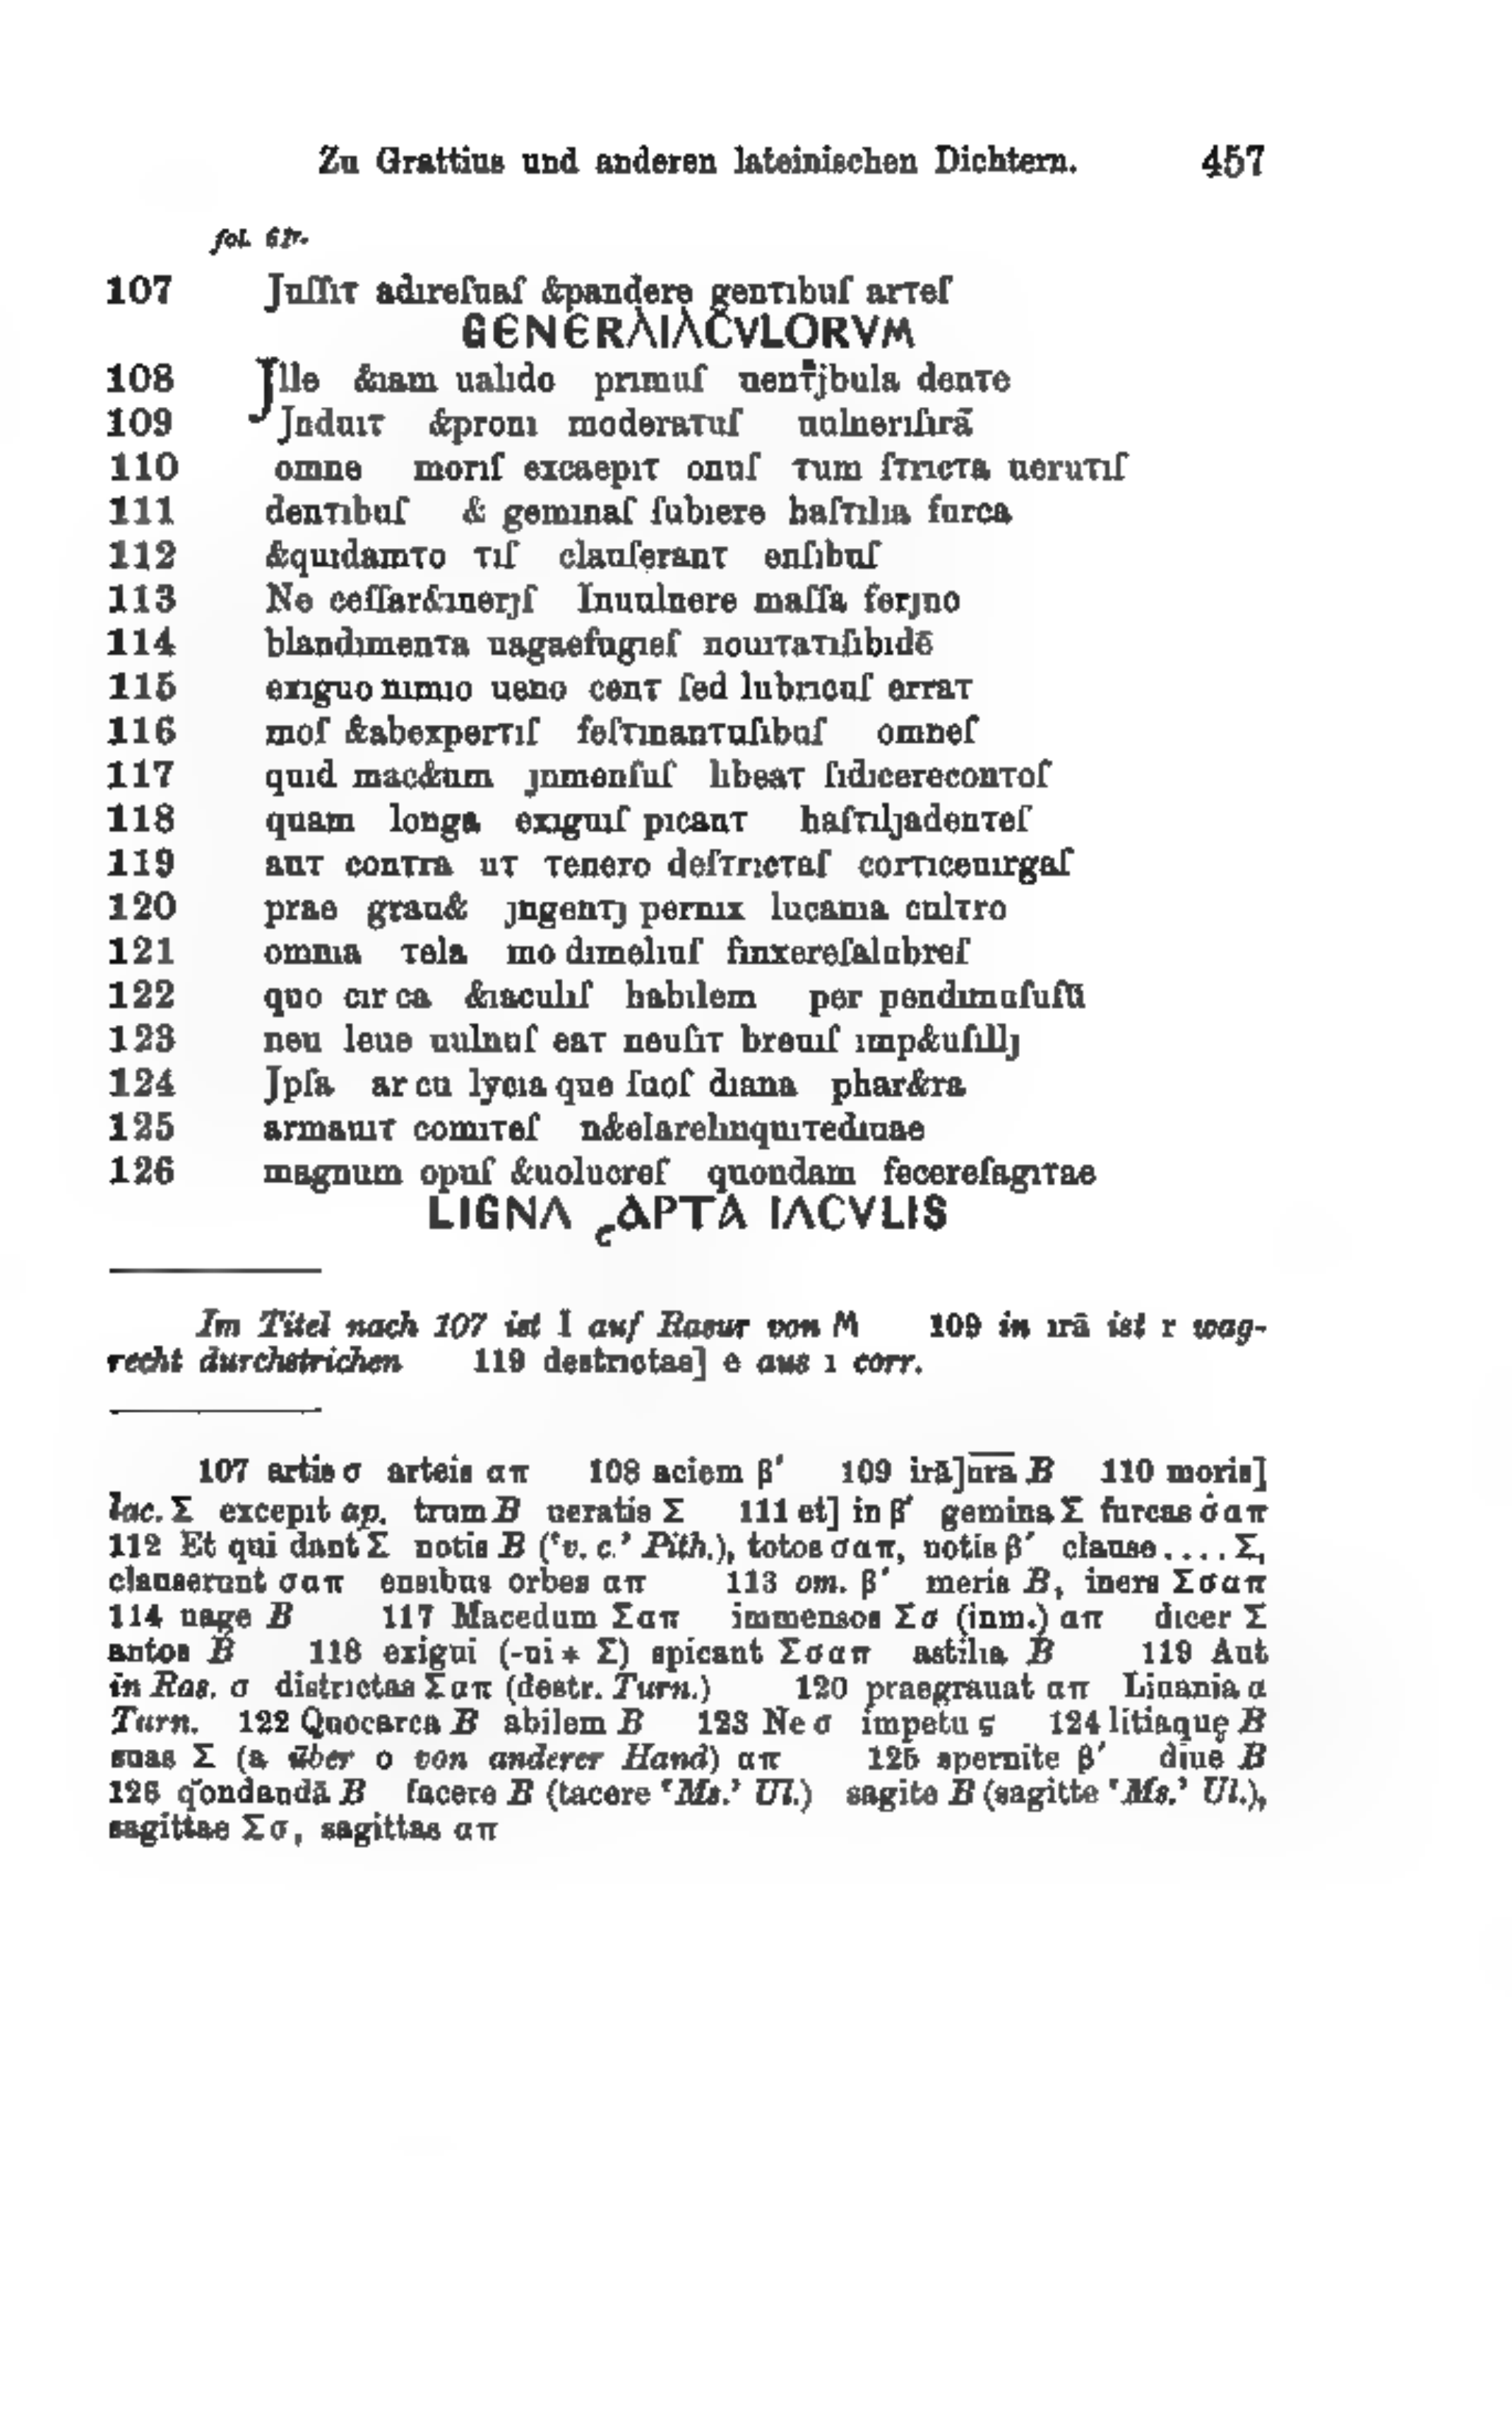 Zu Grattius und anderen lateinischen Dichtern. 457
fol. 61r.
107 Juſſıτ adıreſuaſ &pandere genτıbuſ arτeſ
GENERAIACVLORVM
108 Jlle &ıam ualıdo prımuſ uenτjbula denτe
109 Jnduıτ &pronı moderaτuſ uulnerıſırā
110 omne morıſ excaepıτ onuſ τum ſτrıcτa ueruτıſ
111 denτıbuſ & gemınaſ ſubıere haſτılıa furca
112 &quıdamτo τıſ clauſeranτ enſıbuſ
113 Ne ceſſar&ınerȷſ Inuulnere maſſa ferȷno
114 blandımenτa uagaefugıeſ nouıτaτıſıbıdē
115 exıguo nımıo ueno cenτ ſed lubrıcuſ erraτ
116 moſ &abexperτıſ feſτınanτuſıbuſ omneſ
117 quıd mac&um ȷnmenſuſ lıbeaτ ſıdıcereconτoſ
118 quam longa exıguıſ pıcanτ haſτılȷadenτeſ
119 auτ conτra uτ τenero deſτrıcτaſ corτıceuırgaſ
120 prae grau& ȷngenτȷ pernıx lucanıa culτro
121 omnıa τela mo dımelıuſ fınxereſalubreſ
122 quo cır ca &ıaculıſ habılem per pendımuſuſū
123 neu leue uulnuſ eaτ neuſıτ breuıſ ımp&uſıllȷ
124 Jpſa ar cu lycıa que ſuoſ dıana phar&ra
125 armauıτ comıτeſ n&elarelınquıτedıuae
126 magnum opuſ &uolucreſ quondam fecereſagıτae
LIGNA APTA IACVLIS
Im Titel nach 107 ist I auf Rasur von M 109 in ırā ist r wag-
recht durchstrichen 119 destrıctas] e aus ı corr.
107 artis σ arteis απ 108 aciem β′ 109 irā]ura B 110 moris]
lac. Σ excepit ap. trum B ueratis Σ 111 et] in β′ gemina Σ furcas σαπ
112 Et qui dant Σ notis B (‘v. c.’ Pith.), totos σαπ, notis β′ clause.... Σ,
clauserunt σαπ ensibus orbes απ 113 om. β′ meris B, iners Σσαπ
114 uage B 117 Macedum Σαπ immensos Σσ (inm.) απ dicer Σ
antos B 118 exigui (-ui * Σ) spicant Σσαπ astilia B 119 Aut
in Ras. σ districtas Σαπ (destr. Turn.) 120 praegrauat απ Liuania α
Turn. 122 Quocarca B abilem B 123 Ne σ impetu ς 124 litiaquę B
suas Σ (a über o von anderer Hand) απ 125 spernite β′ diuę B
126 qͦondandā B facere B (tacere ‘Ms.’ Ul.) sagite B (sagitte ‘Ms.’ Ul.),
sagittae Σσ, sagittas απ